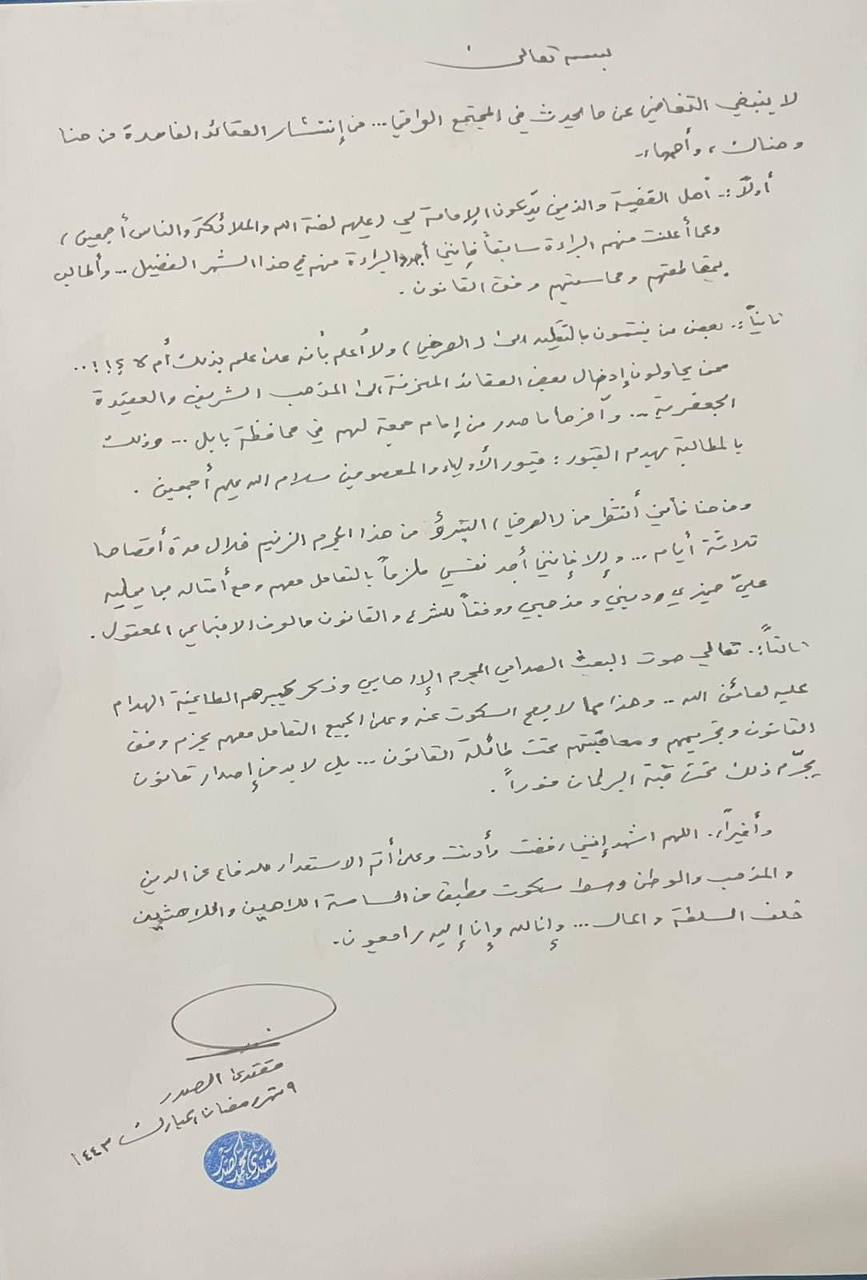 بسمه تعالى
لا ينبغي التغاضي عن ما يحدث في المجتمع العراقي... من إنتشار العقائد الفاسدة من هنا
وهناك، وأهمها:
أولاً:. أهل القضية والذين يدّعون الإمامة لي (عليهم لعنة الله والملائكة والناس أجمعين)
وكما أعلنت منهم البراءة سابقاً فإنني أجدد البراءة منهم في هذا الشهر الفضيل... وأطالب
بمقاطعتهم ومحاسبتهم وفق القانون.
ثانياً:. بعض من ينتمون بالتقليد الى (الصرخي) ولا أعلم بأنه على علم بذلك أم لا؟!!..
ممن يحاولون إدخال بعض العقائد المنحرفة الى المذهب الشريف والعقيدة
الجعفرية... وآخرها ما صدر من إمام جمعة لهم في محافظة بابل... وذلك
بالمطالبة بهدم القبور: قبور الأولياء والمعصومين سلام الله عليهم أجمعين.
ومن هنا فإنني أنتظر من (الصرخي) التبرؤ من هذا المجرم الزنيم خلال مدة أقصاها
ثلاثة أيام... وإلا فإنني أجد نفسي ملزماً بالتعامل معهم ومع أمثاله بما يمليه
عليّ ضميري وديني ومذهبي ووفقاً للشرع والقانون والعرف الاجتماعي المعقول.
ثالثاً:. تعالي صوت البعث الصدامي المجرم الإرهابي وذكر كبيرهم الطاغية الهدام
عليه لعائن الله.. وهذا مما لا يصح السكوت عنه وعلى الجميع التعامل معهم بحزم وفق
القانون وتجريمهم ومعاقبتهم تحت طائلة القانون... بل لا بد من إصدار قانون
يجرّم ذلك تحت قبة البرلمان فوراً.
وأخيراً:. اللهم اشهد إنني رفضت وأدنت وعلى أتم الاستعداد للدفاع عن الدين
والمذهب والوطن وسط سكوت مطبق من الساسة اللاهين واللاهثين
خلف السلطة والمال... وإنا لله وإنا إليه راجعون.
مقتدى الصدر
٩ شهر رمضان المبارك ١٤٤٣